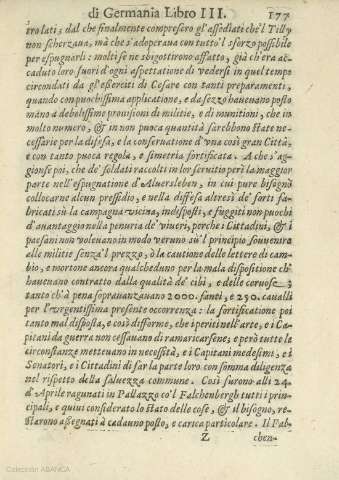 di Germania Libro III. 177
tro lati; dal che finalmente compresero gl'assediati che'l Tilly
non scherzaua, mà che s'adoperaua con tutto'l sforzo possibile
per espugnarli: molti se ne sbigottirono affatto, già ch'era ac-
caduto loro fuori d'ogni aspettatione di vedersi in quel tempo
circondati da gl'eserciti di Cesare con tanti preparamenti,
quando con puochissima applicatione, e da sezzo haueuano posto
mano a debolissime prouisioni di militie, e di munitioni, che in
molto numero, & in non puoca quantità sarebbono state nec-
cessarie per la difesa, e la conseruatione d'vna così gran Città,
e con tanto puoca regola, e simetria fortificata. A che s'ag-
gionse poi, che de' soldati raccolti in lor seruitio perì la maggior
parte nell'espugnatione d'Aluersleben, in cui pure bisognò
collocarne alcun pressidio, e nella diffesa altresì de' forti fa-
bricati sù la campagna vicina, indisposti, e fuggiti non puochi
d'auantaggio nella penuria de' viueri, perche i Cittadini, & i
paesani non voleuano in modo veruno sù'l principio souuenire
alle militie senza'l prezzo, ò la cautione delle lettere di cam-
bio, e mortone ancora qualcheduno per la mala dispositione ch'
haueuano contratto dalla qualità de' cibi, e delle ceruose;
tanto ch'à pena soprauanzauano 2000. fanti, e 250. caualli
per l'vrgentissima presente occorrenza: la fortificatione poi
tanto mal disposta, e così difforme, che i periti nell'arte, e i Ca-
pitani da guerra non cessauano di ramaricarsene; e però tutte le
circonstanze metteuano in necessità, e i Capitani medesimi, e i
Senatori, e i Cittadini di far la parte loro con somma diligenza
nel rispetto della saluezza commune. Così furono alli 24.
d'Aprile ragunati in Pallazzo co'l Falchenbergh tutti i prin-
cipali, e quiui considerato lo stato delle cose, & il bisogno, re-
starono assegnati à cadauno posto, e carica particolare. Il Fal-
Z chen-
Colección ABANCA